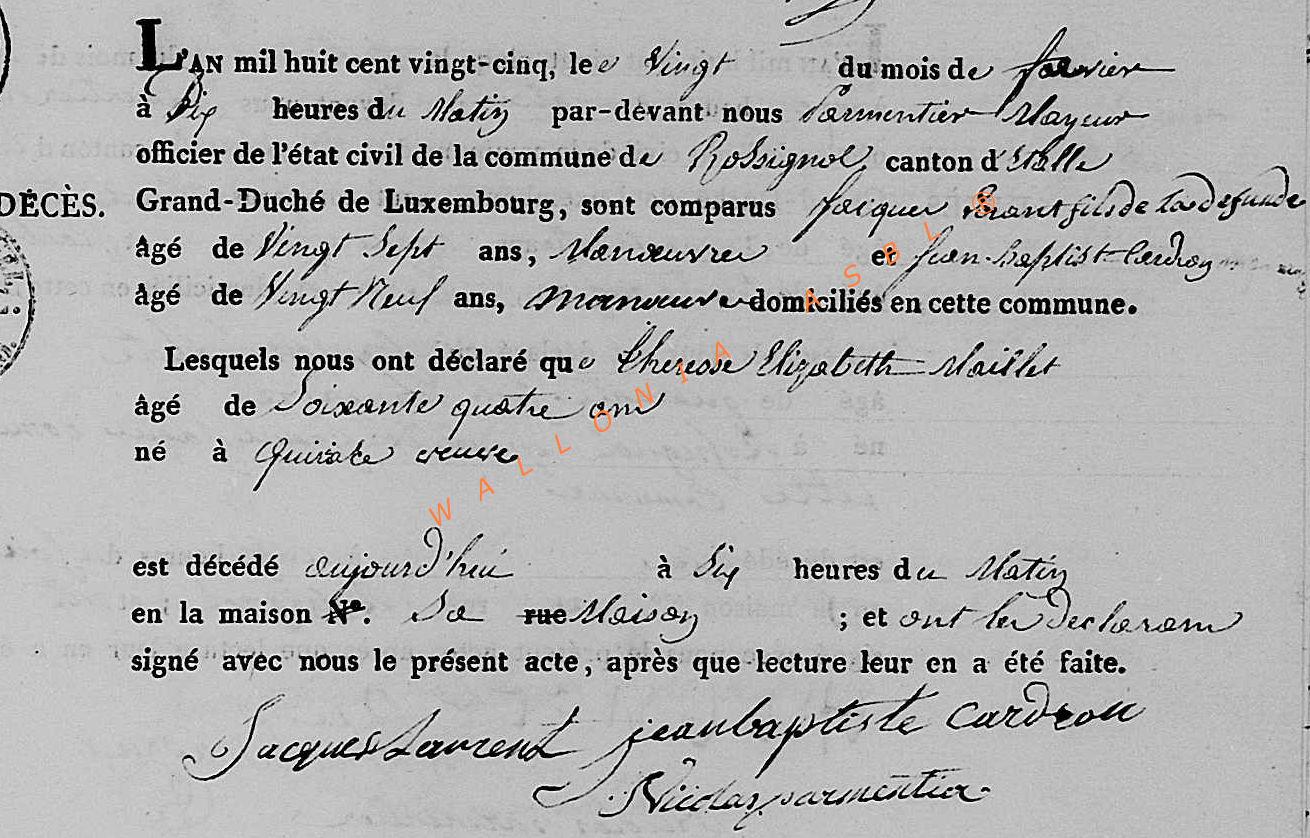 L'AN mil huit cent vingt-cinq, le Vingt du mois de janvier
à Dix heures du Matin par-devant nous Parmentier Mayeur
officier de l'état civil de la commune de Rossignol canton d'Etalle
DÉCÈS. Grand-Duché de Luxembourg, sont comparus Jacques fils de La défunte
âgé de Vingt Sept ans, Manœuvre et Jean-baptiste Cardron
âgé de Vingt Neuf ans, manœuvre domiciliés en cette commune.
Lesquels nous ont déclaré que Therese Elizabeth Maillet
âgé de Soixante quatre ans
né à veuve
est décédé aujourd'hui à Six heures du Matin
en la maison N°. Sa rue Maison ; et ont les declarans
signé avec nous le présent acte, après que lecture leur en a été faite.
Jacques Laurent jean baptiste Cardron
Nicolas parmentier
WALLONIA ASBL ®